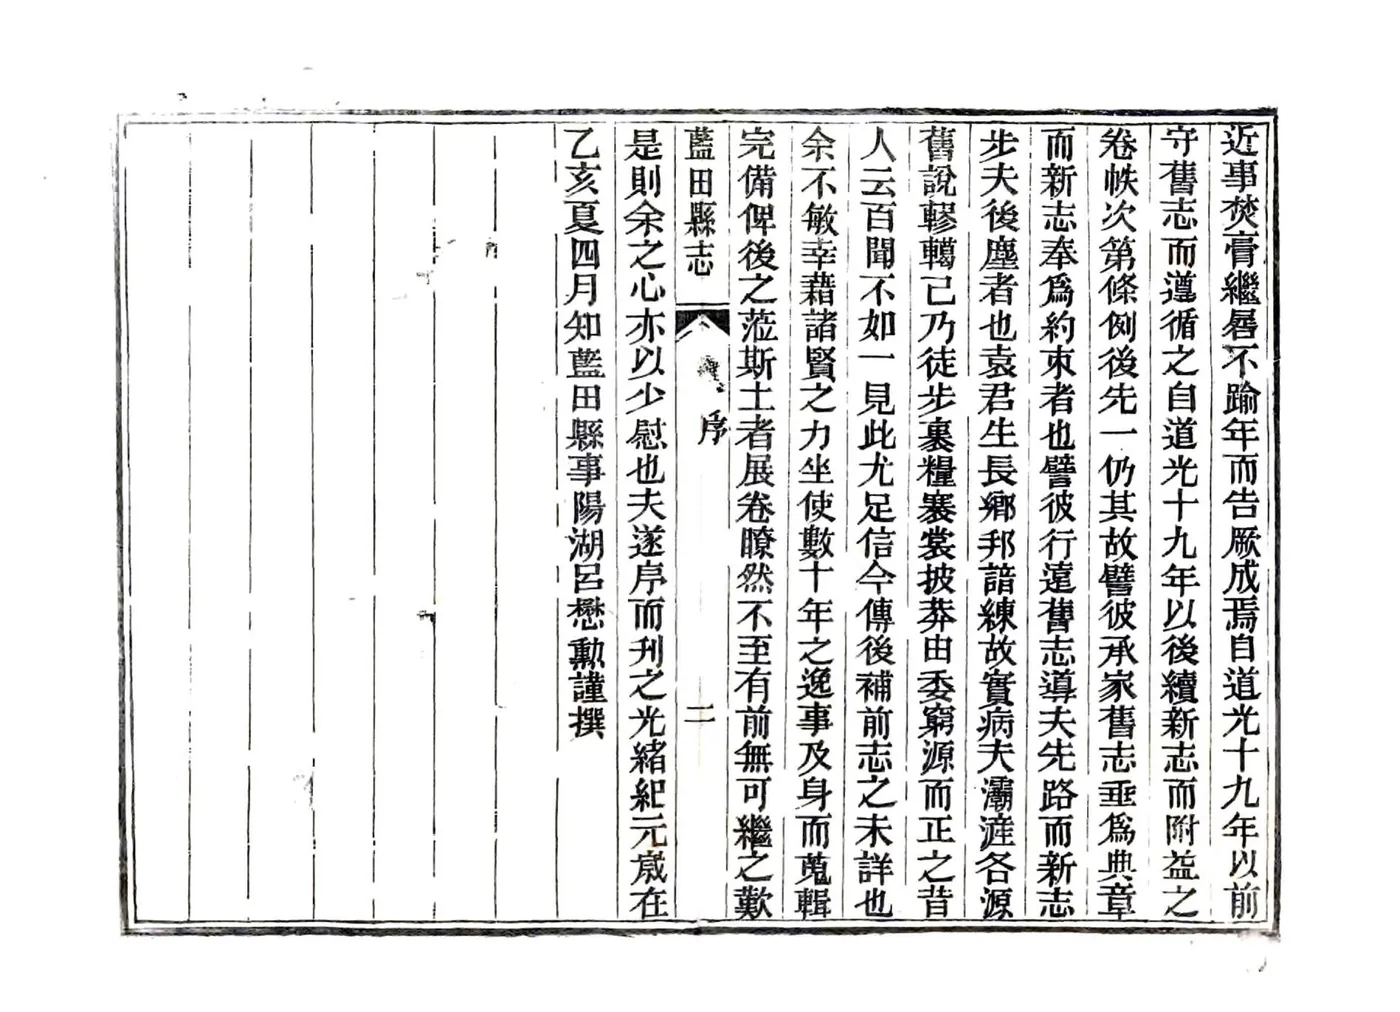 近事焚膏繼晷不踰年而告厥成焉自道光十九年以前
守舊志而遵循之自道光十九年以後續新志而附益之
卷帙次第條例後先一仍其故譬彼承家舊志垂爲典章
而新志奉爲約束者也譬彼行遠舊志導夫先路而新志
步夫後塵者也袁君生長鄉邦諳練故實病夫灞滻各源
舊說轇轕己乃徒步裹糧褰裳披莽由委窮源而正之昔
人云百聞不如一見此尤足信今傳後補前志之未詳也
余不敏幸藉諸賢之力坐使數十年之逸事及身而蒐輯
完備俾後之蒞斯土者展卷瞭然不至有前無可繼之歎
藍田縣志
序
二
是則余之心亦以少慰也夫遂序而刊之光緒紀元歲在
乙亥夏四月知藍田縣事陽湖呂懋勳謹撰